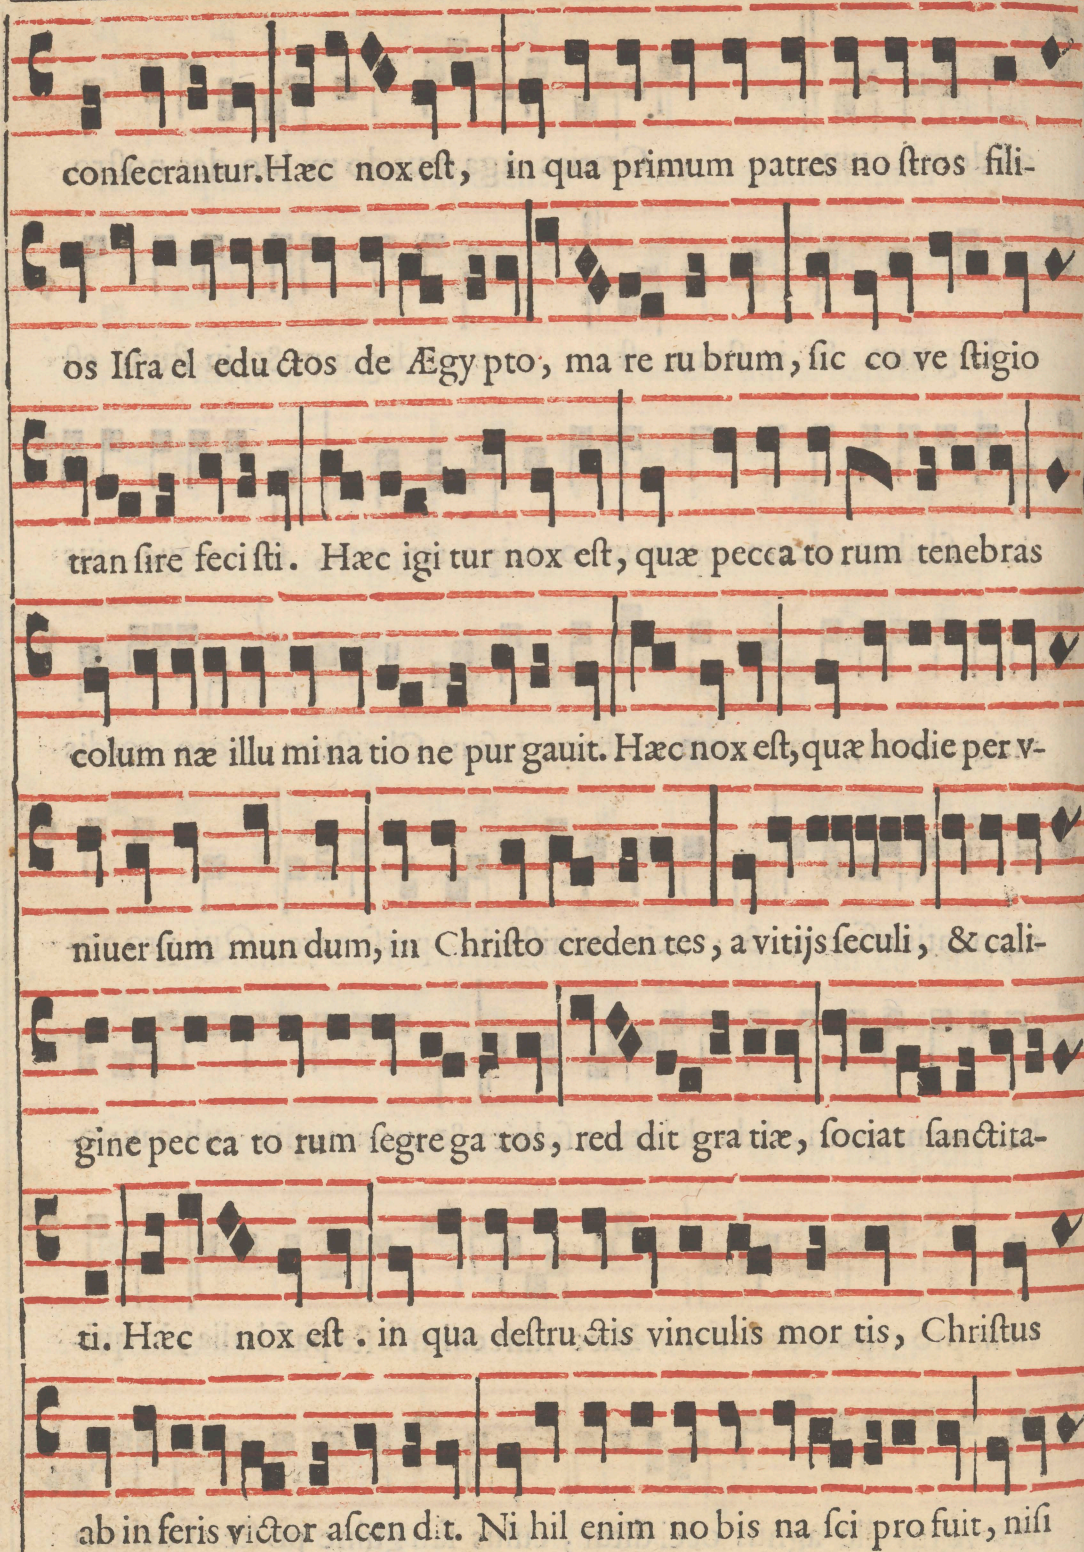 conſecrantur. Hæc nox eſt, in qua primum patres noſtros fili-
os Iſrael eductos de Ægypto, mare rubrum, ſicco veſtigio
tranſire feciſti. Hæc igitur nox eſt, quæ peccatorum tenebras
columnæ illuminatione purgauit. Hæc nox eſt, quæ hodie per v-
niuerſum mundum, in Chriſto credentes, a vitijs ſeculi, & cali-
gine peccatorum ſegregatos, reddit gratiæ, ſociat ſanctita-
ti. Hæc nox eſt. in qua deſtructis vinculis mortis, Chriſtus
ab inferis victor aſcendit. Nihil enim nobis naſci profuit, niſi